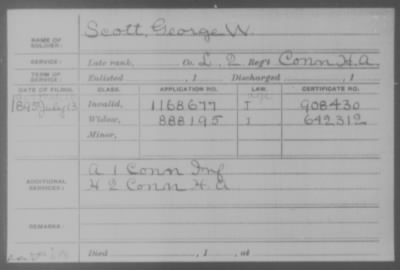 NAME OF SOLDIER: Scott, George W.
SERVICE: Late rank, Co. L, 2 Reg't Conn H.A.
TERM OF SERVICE: Enlisted , 1 Discharged , 1
DATE OF FILING. CLASS. APPLICATION NO. LAW. CERTIFICATE NO.
1895 July 13 Invalid, 1168677 I 908430
Widow, 888195 1 642312
Minor,
ADDITIONAL SERVICES: A 1 Conn Inf
H 2 Conn H.A
REMARKS:
Died , 1 , at